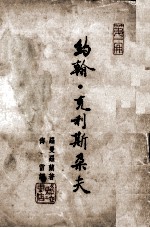 約翰·克利斯朵夫
羅曼羅蘭著
傅雷譯